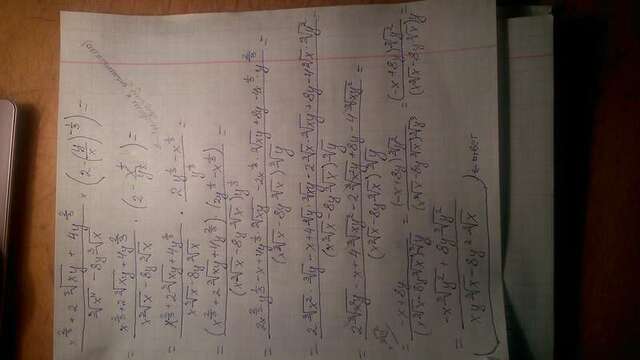 (x^{2/3} + 2∛(xy) + 4y^{2/3}) / (∛(x⁴) − 8y∛x) × (2 − (y/x)^{−1/3}) =
= (x^{2/3} + 2∛(xy) + 4y^{2/3}) / (x∛x − 8y∛x) · (2 − x^{1/3}/y^{1/3}) =
= (x^{2/3} + 2∛(xy) + 4y^{2/3}) / (x∛x − 8y∛x) · (2y^{1/3} − x^{1/3}) / y^{1/3} =
= (x^{2/3} + 2∛(xy) + 4y^{2/3}) · (2y^{1/3} − x^{1/3}) / ((x∛x − 8y∛x) y^{1/3}) =
= (2x^{2/3}y^{1/3} − x + 4y^{1/3}·∛(xy) − 2x^{1/3}·∛(xy) + 8y − 4x^{1/3}·y^{2/3}) / ((x∛x − 8y∛x)∛y) =
= (2·∛(x²)·∛y − x + 4∛y·∛(xy) − 2∛x·∛(xy) + 8y − 4∛x·∛(y²)) / ((x∛x − 8y∛x)∛y) =
= (2∛(x²y) − x + 4∛(xy²) − 2∛(x²y) + 8y − 4∛(xy²)) / ((x∛x − 8y∛x)∛y) =
= (−x + 8y) / ((x∛x − 8y∛x)∛y) = ((−x + 8y)∛(y²)) / ((x∛x − 8y∛x)∛(y³)) = ((−x + 8y)∛(y²)) / ((x∛x − 8y∛x)y) =
= (−x∛(y²) + 8y∛(y²)) / (xy∛x − 8y²·∛x) ← ответ